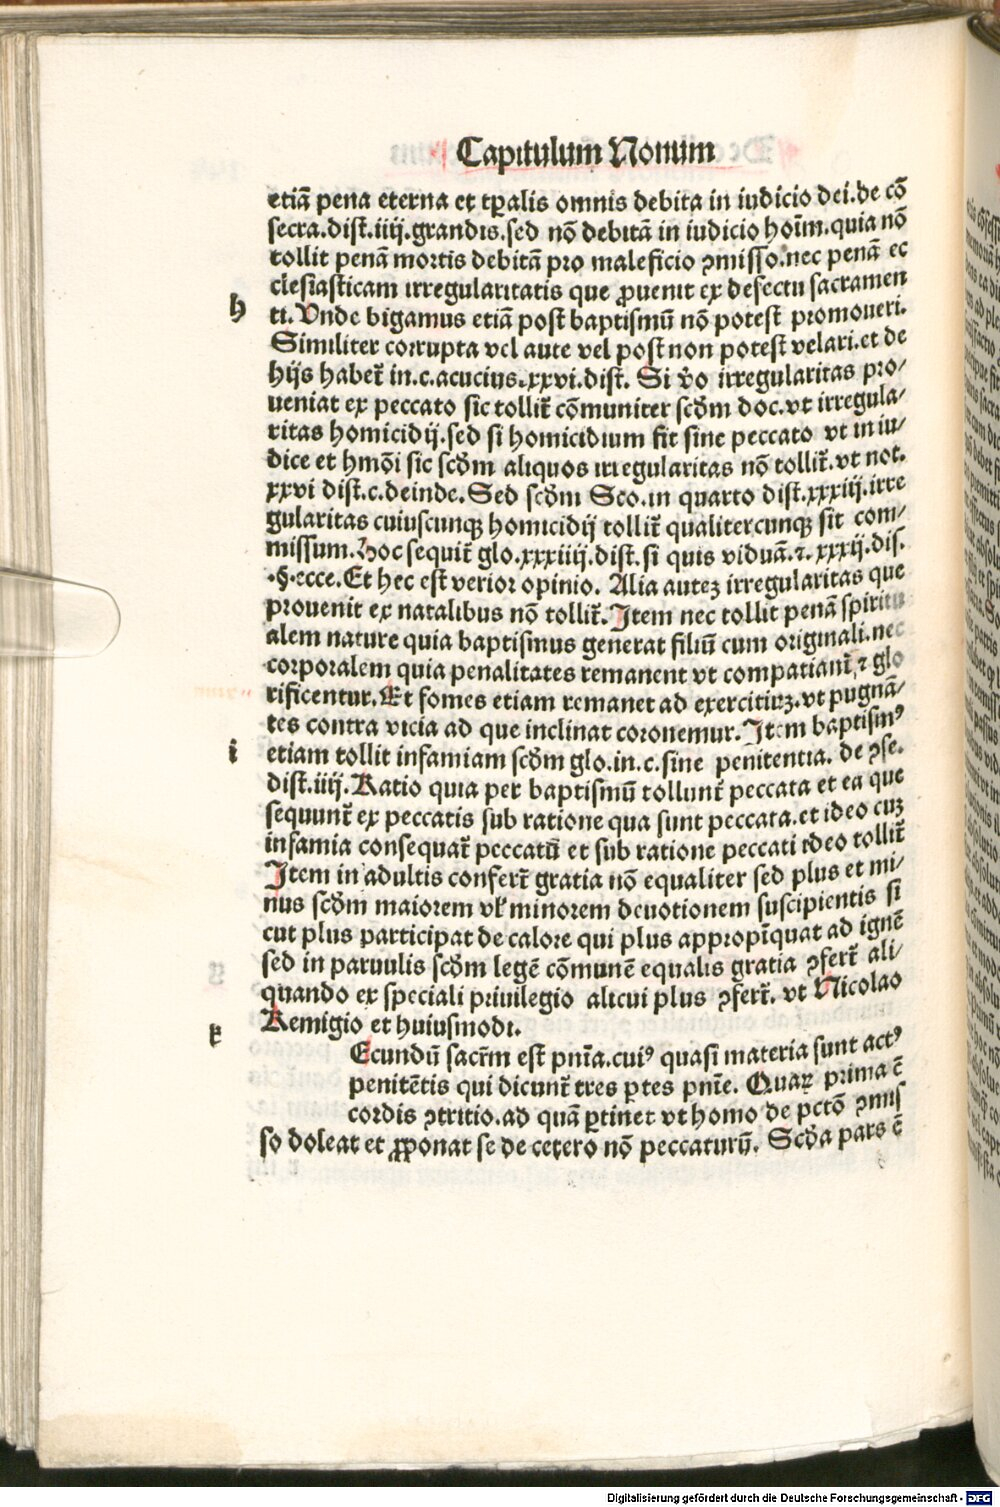 Capitulum Nonum
etiā pena eterna et tꝑalis omnis debita in iudicio dei.de cō
secra.dist.iiij.grandis.sed nō debitā in iudicio hoīm.quia nō
tollit penā mortis debitā pro maleficio ↄmisso.nec penā ec
clesiasticam irregularitatis que ꝓuenit ex defectu sacramen
h
ti.Vnde bigamus etiā post baptismū nō potest promoueri.
Similiter corrupta vel ante vel post non potest velari.et de
hijs habet᷑ in.c.acucius.xxvi.dist. Si v̓o irregularitas pro/
ueniat ex peccato sic tollit᷑ cōmuniter scd̓m doc.vt irregula/
ritas homicidij.sed si homicidium fit sine peccato vt in iu/
dice et hmōi sic scd̓m aliquos irregularitas nō tollit᷑.vt not.
xxvi dist.c.deinde.Sed scd̓m Sco.in quarto dist.xxxiij.irre
gularitas cuiuscunqꝫ homicidij tollit᷑ qualitercunqꝫ sit com/
missum.Hoc sequit᷑ glo.xxxiiij.dist.si quis viduā.⁊.xxxij.dis.
.§.ecce.Et hec est verior opinio. Alia auteꝫ irregularitas que
prouenit ex natalibus nō tollit᷑.Item nec tollit penā spiritu
alem nature quia baptismus generat filiū cum originali.nec
corporalem quia penalitates remanent vt compatiant᷑ ⁊ glo
rificentur.Et fomes etiam remanet ad exercitiuꝫ.vt pugnā/
tes contra vicia ad que inclinat coronemur.Item baptismꝰ
i
etiam tollit infamiam scd̓m glo.in.c.sine penitentia. de ↄse.
dist.iiij.Ratio quia per baptismū tollunt᷑ peccata et ea que
sequunt᷑ ex peccatis sub ratione qua sunt peccata.et ideo cuꝫ
infamia consequat᷑ peccatū et sub ratione peccati ideo tollit᷑
Item in adultis confert᷑ gratia nō equaliter sed plus et mi/
nus scd̓m maiorem vl̓ minorem deuotionem suscipientis si
cut plus participat de calore qui plus appropīquat ad ignē
sed in paruulis scd̓m legē cōmunē equalis gratia ↄfert᷑ ali/
quando ex speciali priuilegio alicui plus ↄfert᷑. vt Nicolao
Remigio et huiusmodi.
k
Ecundū sacr̄m est pnīa.cuiꝰ quasi materia sunt actꝰ
penitētis qui dicunt᷑ tres ꝑtes pnīe. Quaꝝ prima ē
cordis ↄtritio.ad quā ꝑtinet vt homo de pctō ↄmis
so doleat et ꝓponat se de cetero nō peccaturū. Scd̓a pars ē
Digitalisierung gefördert durch die Deutsche Forschungsgemeinschaft - DFG